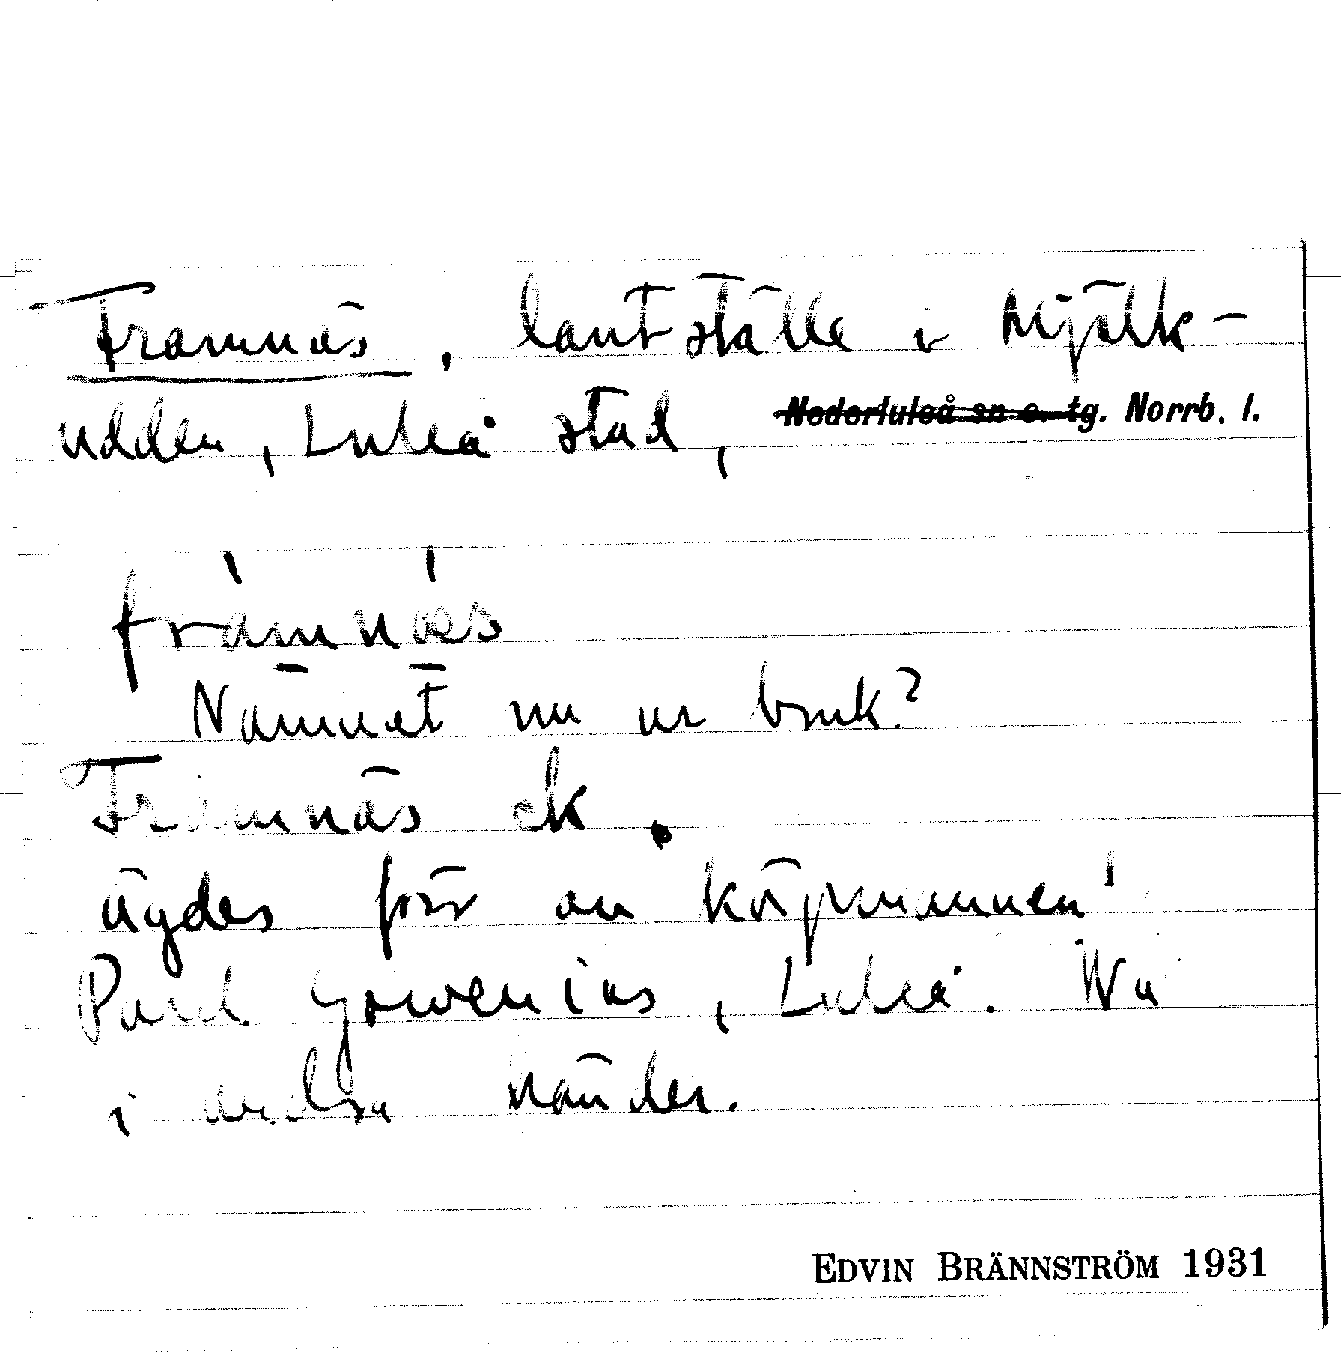 Framnäs, lantställe i Mjölk-
udden, Luleå stad, Nederluleå sn o. tg. Norrb. l.
frámnä́s
Namnet nu ur bruk?
Framnäs ek.
ägdes förr av köpmannen
Paul Govenius, Luleå. Nu
i andra händer.
EDVIN BRÄNNSTRÖM 1931